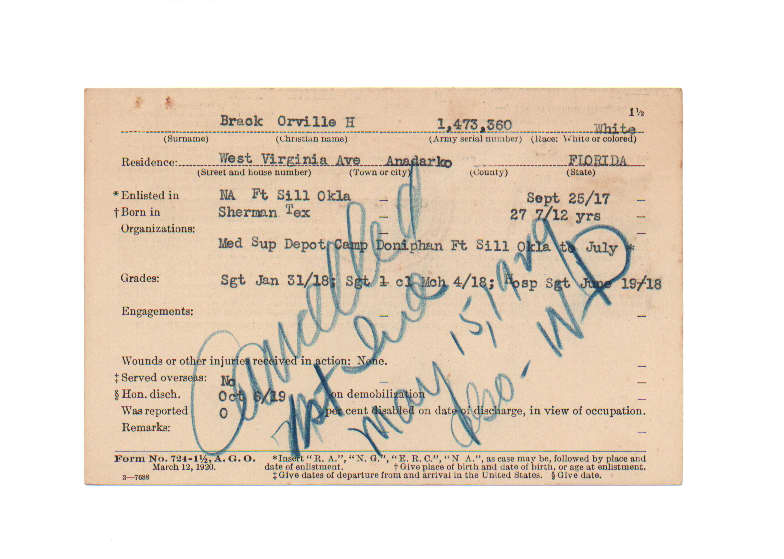 1½
Brack Orville H 1,473,360 White
(Surname) (Christian name) (Army serial number) (Race: White or colored)
Residence: West Virginia Ave Anadarko FLORIDA
(Street and house number) (Town or city) (County) (State)
* Enlisted in NA Ft Sill Okla Sept 25/17
† Born in Sherman Tex 27 7/12 yrs
Organizations:
Med Sup Depot Camp Doniphan Ft Sill Okla to July *
Grades: Sgt Jan 31/18; Sgt 1 cl Mch 4/18; Hosp Sgt June 19/18
Engagements:
Wounds or other injuries received in action: None.
‡ Served overseas: No
§ Hon. disch. Oct 6/19 on demobilization
Was reported 0 per cent disabled on date of discharge, in view of occupation.
Remarks:
Cancelled
1st Ind
May 15, 1929
WD
Form No. 724-1½, A. G. O. *Insert "R. A.", "N. G.", "E. R. C.", "N A.", as case may be, followed by place and
March 12, 1920. date of enlistment. † Give place of birth and date of birth, or age at enlistment.
3—7688 ‡ Give dates of departure from and arrival in the United States. § Give date.